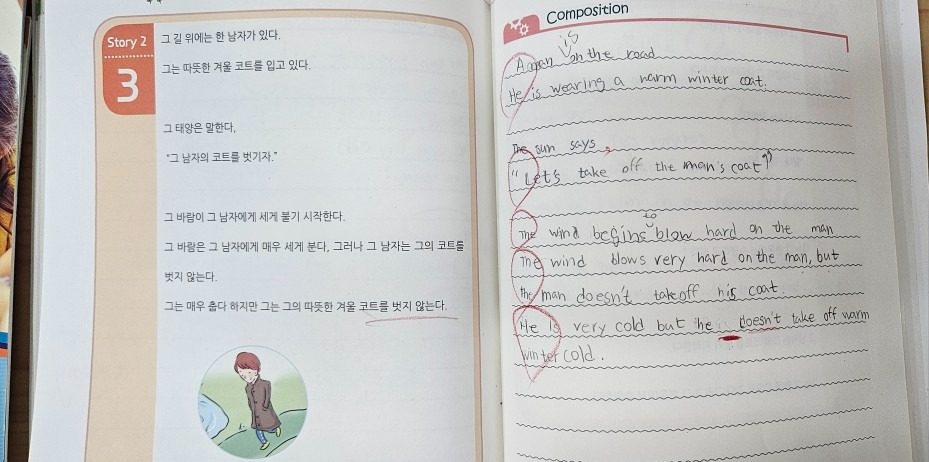 Story 2
3
그 길 위에는 한 남자가 있다.
그는 따뜻한 겨울 코트를 입고 있다.
그 태양은 말한다,
"그 남자의 코트를 벗기자."
그 바람이 그 남자에게 세게 불기 시작한다.
그 바람은 그 남자에게 매우 세게 분다, 그러나 그 남자는 그의 코트를
벗지 않는다.
그는 매우 춥다 하지만 그는 그의 따뜻한 겨울 코트를 벗지 않는다.
Composition
is
A man on the road
He is wearing a warm winter coat.
The sun says,
"Let's take off the man's coat"
to
The wind begins blow hard on the man
The wind blows very hard on the man, but
the man doesn't take off his coat.
He is very cold but he doesn't take off warm
winter cold.